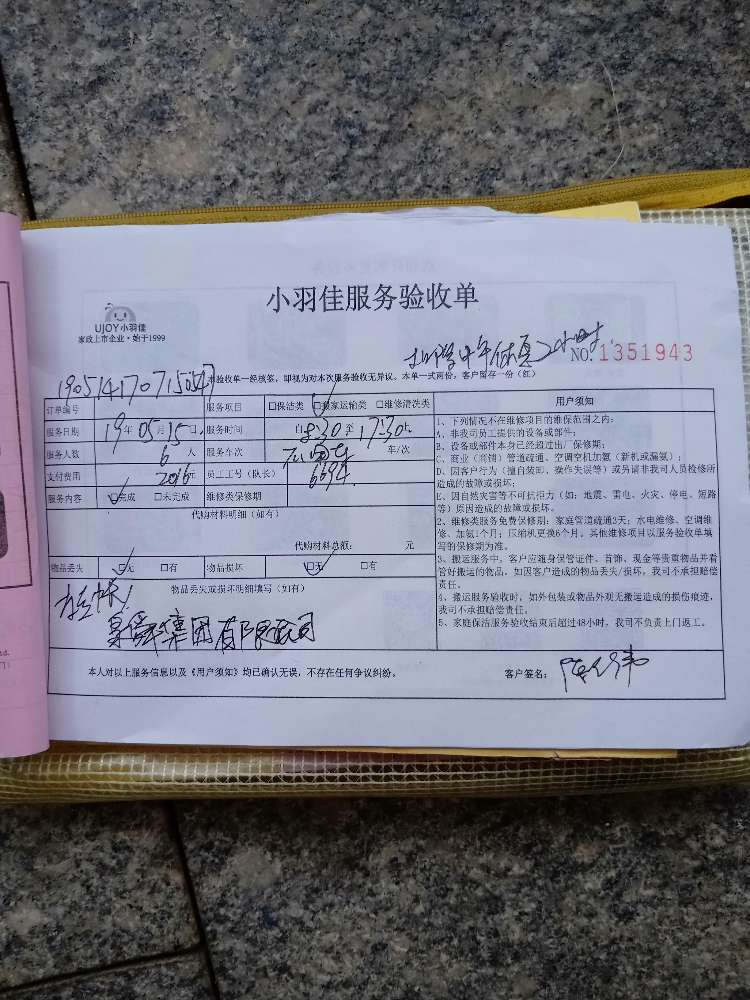 小羽佳服务验收单
UJOY小羽佳
家政上市企业·始于1999
中午休息2小时
NO 1351943
本验收单一经核签，即视为对本次服务验收无异议。本单一式两份，客户留存一份（红）
订单编号
服务项目 □保洁类 □搬家运输类 □维修清洗类
服务日期 19年05月15日
服务时间 自8:30至17:30
服务人数 6人
服务车次 车/次
支付费用 2016元
员工工号（队长） 6694
服务内容 □完成 □未完成
维修类保修期
代购材料明细（如有）
代购材料总额： 元
物品丢失 □无 □有 物品损坏 □无 □有
物品丢失或损坏明细填写（如有）
集团有限公司
本人对以上服务信息以及《用户须知》均已确认无误，不存在任何争议纠纷。
客户签名：
用户须知
1、下列情况不在维修项目的维保范围之内：
A、非我司员工提供的设备或部件；
B、设备或部件本身已经超过出厂保修期；
C、商业（商铺）管道疏通、空调空机加氨（新机或漏氨）；
D、因客户行为（擅自装卸、操作失误等）或另请非我司人员检修所
造成的故障或损坏；
E、因自然灾害等不可抗拒力（如：地震、雷电、火灾、停电、短路
等）原因造成的故障或损坏。
2、维修类服务免费保修期：家庭管道疏通3天；水电维修、空调维
修、加氨1个月；压缩机更换6个月，其他维修项目以服务验收单填
写的保修期为准。
3、搬运服务中，客户应随身保管证件、首饰、现金等贵重物品并看
管好搬运的物品，如因客户造成的物品丢失/损坏，我司不承担赔偿
责任。
4、搬运服务验收时，如外包装或物品外观无搬运造成的损伤痕迹，
我司不承担赔偿责任。
5、家庭保洁服务验收结束后超过48小时，我司不负责上门返工。